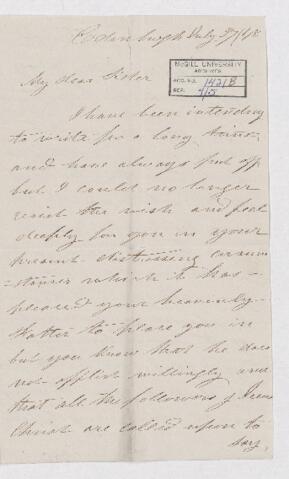 Edenburgh July 27/48
McGILL UNIVERSITY
ARCHIVES
ACC. NO. 1421B
REF.
My dear Sister
I have been intending
to write for a long time
and have always put off
but I could no longer
resist the wish and feel
deeply for you in your
present distressing circum
stances which it has
pleased your heavenly
Father to place you in
but you know that he does
not afflict willingly and
that all the followers of Jesus
Christ are called upon to
say